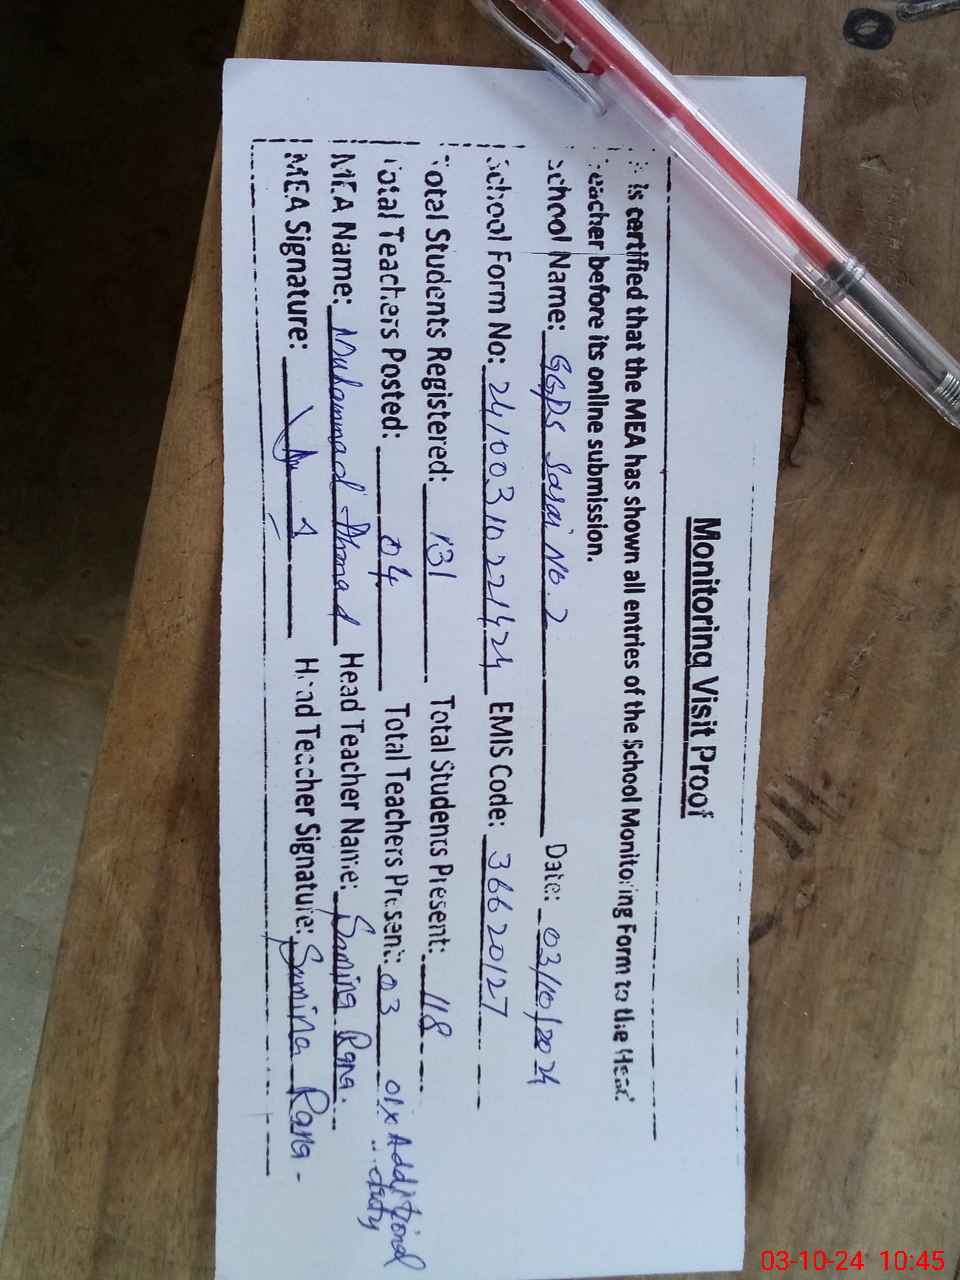 Monitoring Visit Proof
is certified that the MEA has shown all entries of the School Monitoring Form to the Head
Teacher before its online submission.
School Name: GGPS Sarai No. 2 Date: 03/10/2024
School Form No: 24100310221424 EMIS Code: 36620127
Total Students Registered: 131 Total Students Present: 118
Total Teachers Posted: 04 Total Teachers Present: 03 01x Additional duty
MEA Name: Muhammad Ahmad Head Teacher Name: Samina Rana.
MEA Signature: Head Teacher Signature: Samina Rana.
03-10-24 10:45